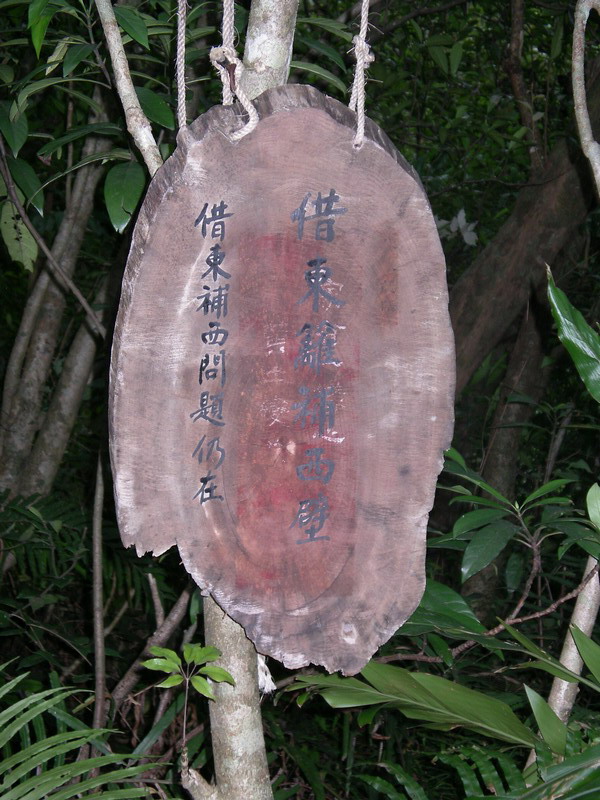 借東籬補西壁
借東補西問題仍在